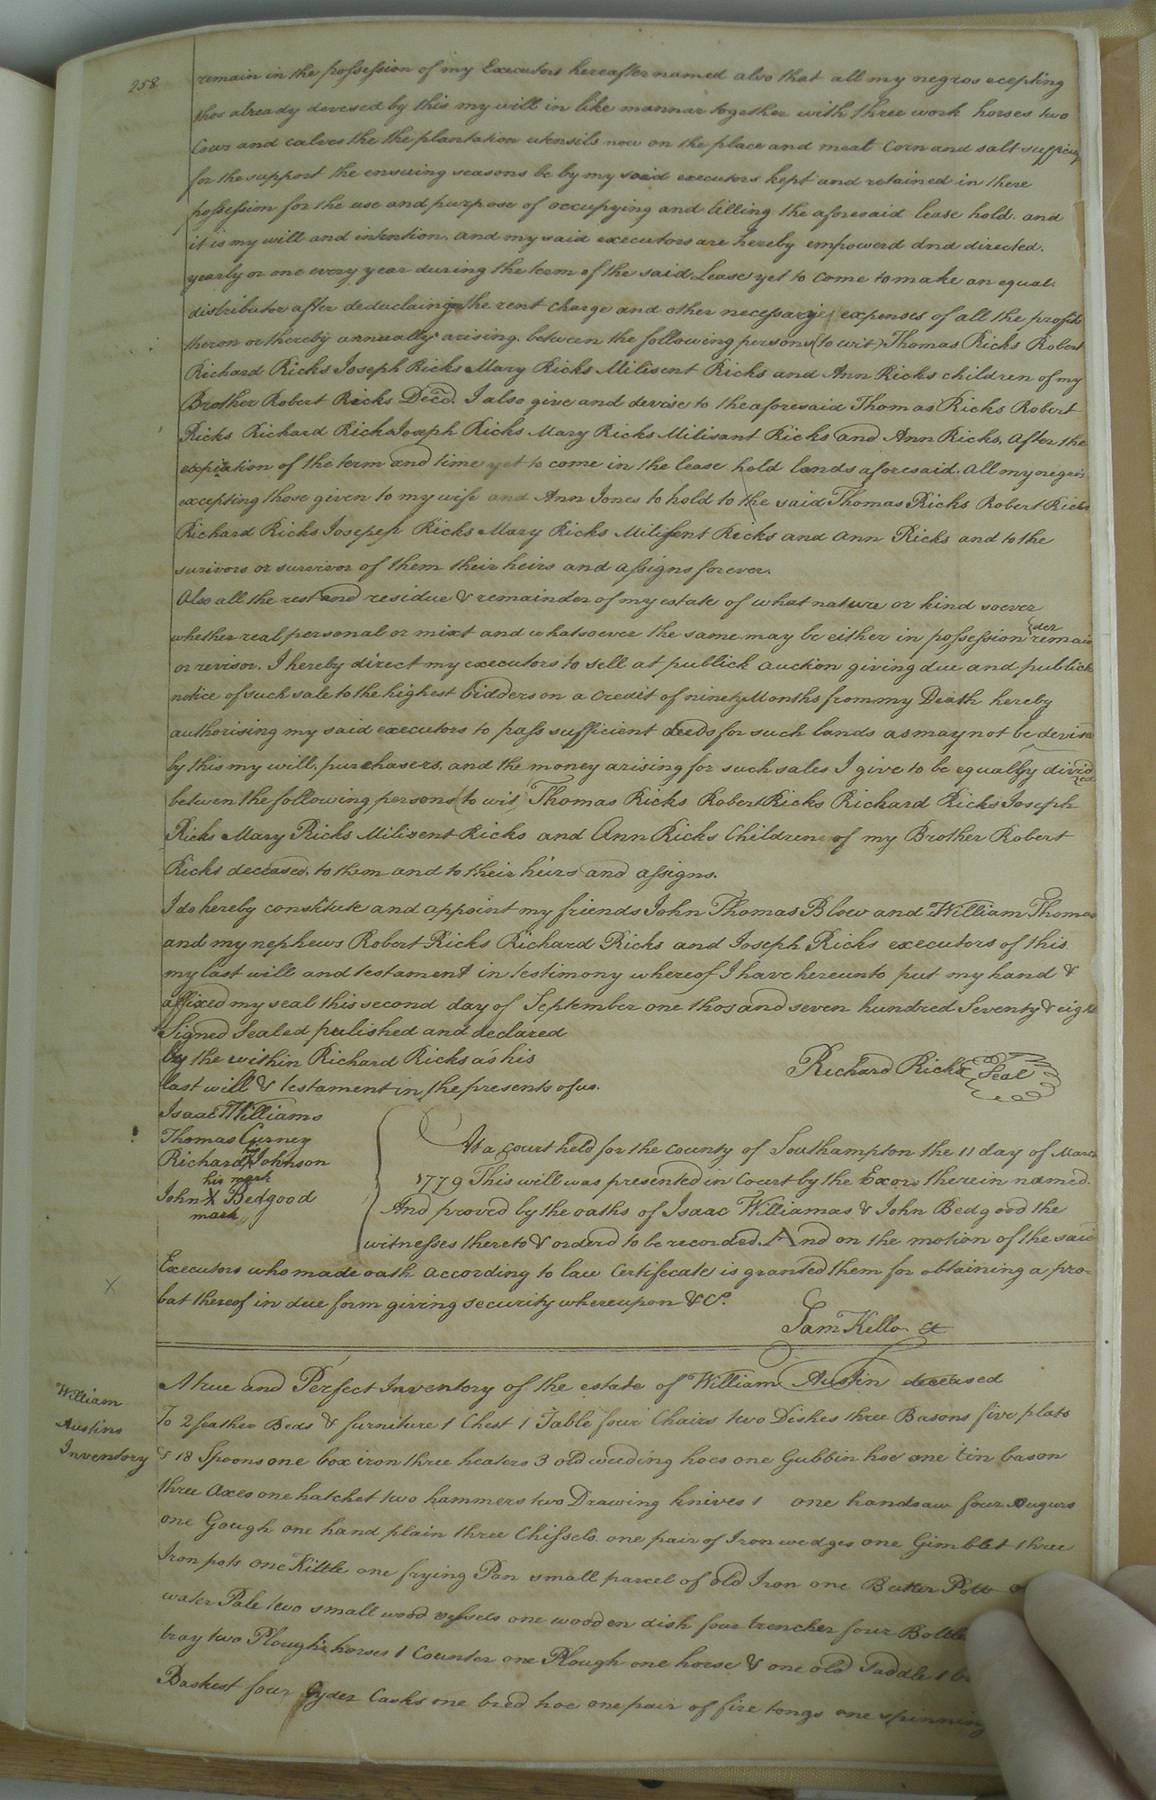 258
remain in the possession of my Executors hereafter named also that all my negros ecepting
thos already devised by this my will in like mannar together with three work horses two
Cows and calves the the plantation utensils now on the place and meat Corn and salt sufficient
for the support the ensuing seasons be by my said executors kept and retained in there
possession for the use and purpose of occupying and tilling the aforesaid lease hold. and
it is my will and intention. and my said executors are hereby empowerd dnd directed.
yearly or one every year during the term of the said Lease yet to come to make an equal
distributor after deduclaing the rent charge and other necessary expenses of all the profits
theron or thereby annually arising. between the following persons (to wit) Thomas Ricks Robert
Richard Ricks Joseph Ricks Mary Ricks Milisent Ricks and Ann Ricks children of my
Brother Robert Ricks Decd. I also give and devise to the aforesaid Thomas Ricks Robert
Ricks Richard Ricks Joseph Ricks Mary Ricks Milisant Ricks and Ann Ricks, After the
expiration of the term and time yet to come in the lease hold lands aforesaid. All my negros
excepting those given to my wife and Ann Jones to hold to the said Thomas Ricks Robert Ricks
Richard Ricks Josepeh Ricks Mary Ricks Milisent Ricks and Ann Ricks and to the
surivors or survivor of them their heirs and assigns forever.
Also all the rest and residue & remainder of my estate of what nature or kind soever
whether real personal or mixt and whatsoever the same may be either in possession remain
der
or revison. I hereby direct my executors to sell at publick auction giving due and publick
notice of such sale to the highest bidders on a Credit of ninety Months from my Death hereby
authorising my said executors to pass sufficient deeds for such lands as may not be devise
by this my will. purchasers. and the money arising for such sales I give to be equally divid
ed
betwen the following persons (to wit) Thomas Ricks Robert Ricks Richard Ricks Joseph
Ricks Mary Ricks Milisent Ricks and Ann Ricks Children of my Brother Robert
Ricks deceased. to them and to their heirs and assigns.
I do hereby constitute and appoint my friends John Thomas Blow and William Thomas
and my nephews Robert Ricks Richard Ricks and Joseph Ricks executors of this
my last will and testament in testimony whereof I have hereunto put my hand &
affixed my seal this second day of September one thosand seven hundred Seventy & eight
Signed Sealed pulished and declared
by the within Richard Ricks as his
last will & testament in the presents of us.
Richard Ricks Seal
Isaac Williams
Thomas Gurney
Richard Johnson
his mark
John X Bedgood
mark
At a court held for the county of Southampton the 11 day of March
1779 This will was presented in Court by the Exors therein named.
And proved by the oaths of Isaac Williamas & John Bedgood the
witnesses thereto & orderd to be recorded. And on the motion of the said
Executors who made oath according to law Certifecate is granted them for obtaining a pro-
bat thereof in due form giving security whereupon &C.
Sam Kello Ct
William
Austins
Inventory
A true and Perfect Inventory of the estate of William Austin deceased
To 2 feather Beds & furniture 1 Chest 1 Table four Chairs two Dishes three Basons five plats
& 18 Spoons one box iron three heaters 3 old weeding hoes one Gubbin hoe one tin bason
three Axes one hatchet two hammers two Drawing knives 1 one handsaw four Augurs
one Gough one hand plain three Chissels. one pair of Iron wedges one Gimblet three
Iron pots one Kittle one frying Pan small parcel of old Iron one Butter Pott
water Pale two small wood vessels one wooden dish four trencher four Bottle
tray two Plough horses 1 Counter one Plough one horse & one old Saddle 1
Basket four Cyder Casks one bred hoe one pair of fire tongs one spinning